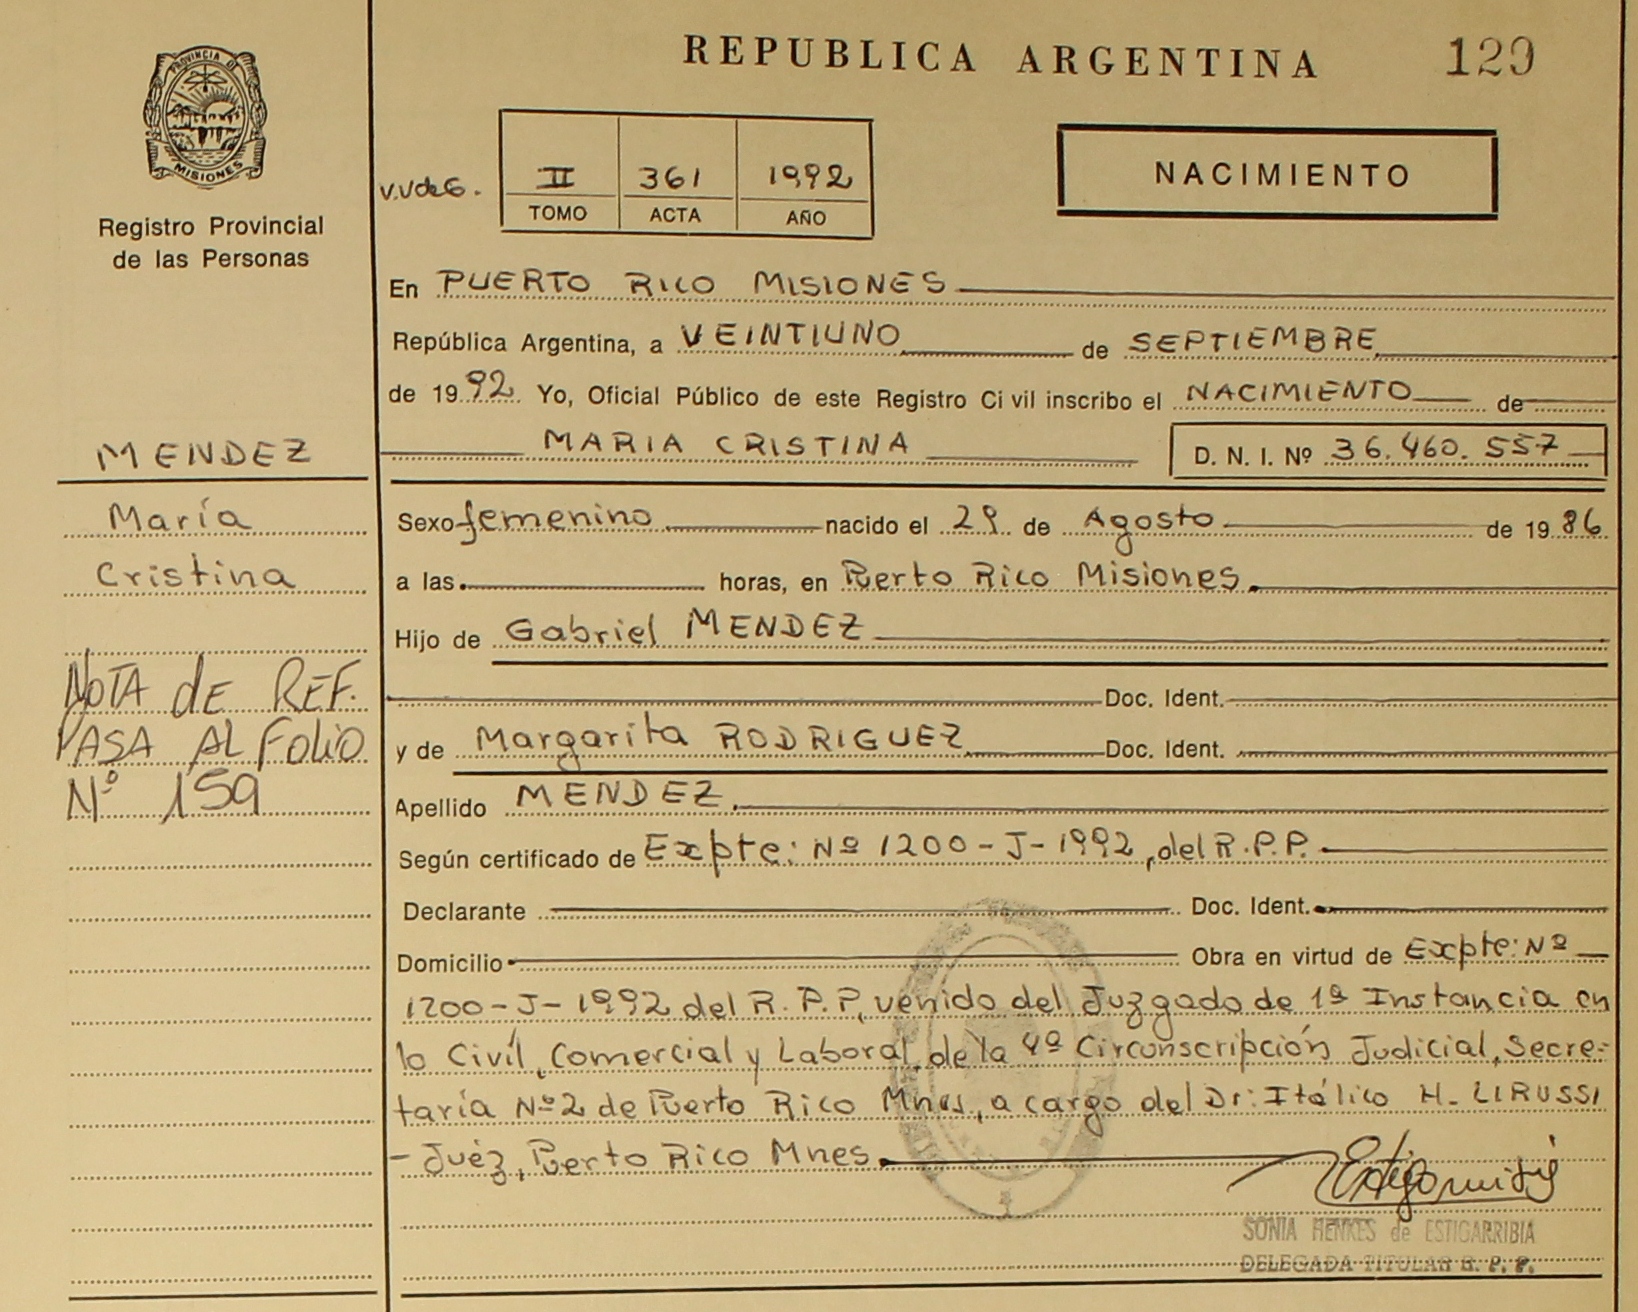 REPUBLICA ARGENTINA 129
PROVINCIA DE
MISIONES
Registro Provincial
de las Personas
V.V de G. II 361 1992
TOMO ACTA AÑO
NACIMIENTO
En PUERTO RICO MISIONES
República Argentina, a VEINTIUNO de SEPTIEMBRE
de 1992 Yo, Oficial Público de este Registro Civil inscribo el NACIMIENTO de
MARIA CRISTINA D. N. I. Nº 36.460.557
MENDEZ
María
Cristina
NOTA de REF.
PASA AL FOLIO
Nº 159
Sexo femenino nacido el 29 de Agosto de 1986
a las horas, en Puerto Rico Misiones.
Hijo de Gabriel MENDEZ
Doc. Ident.
y de Margarita RODRIGUEZ Doc. Ident.
Apellido MENDEZ
Según certificado de Expte: Nº 1200-J-1992, del R.P.P.
Declarante Doc. Ident.
Domicilio Obra en virtud de Expte: Nº
1200-J-1992 del R.P.P, venido del Juzgado de 1ª Instancia en
lo Civíl, Comercial y Laboral, de la 4ª Circunscripción Judicial, Secre-
taría Nº2 de Puerto Rico Mnes, a cargo del Dr: Itálico H. LIRUSSI
- Juéz, Puerto Rico Mnes
SONIA HENKES de ESTIGARRIBIA
DELEGADA TITULAR R. P. P.